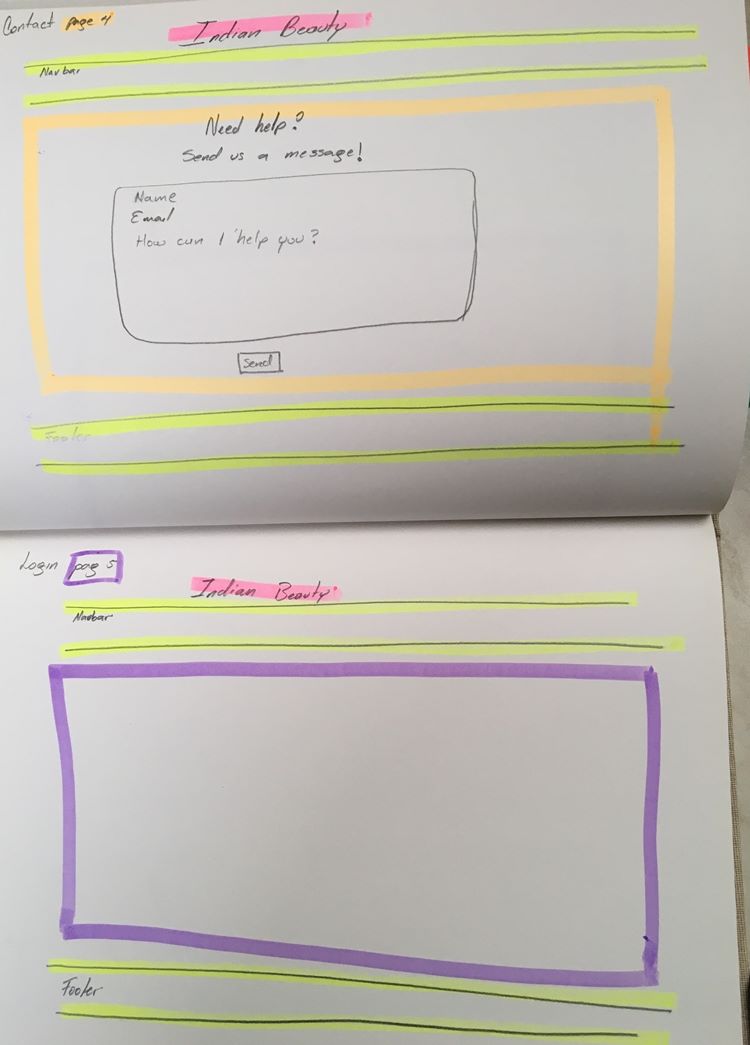 Contact page 4
Indian Beauty
Navbar
Need help?
Send us a message!
Name
Email
How can I help you?
Send
Footer
Login pag 5
Indian Beauty
Navbar
Footer